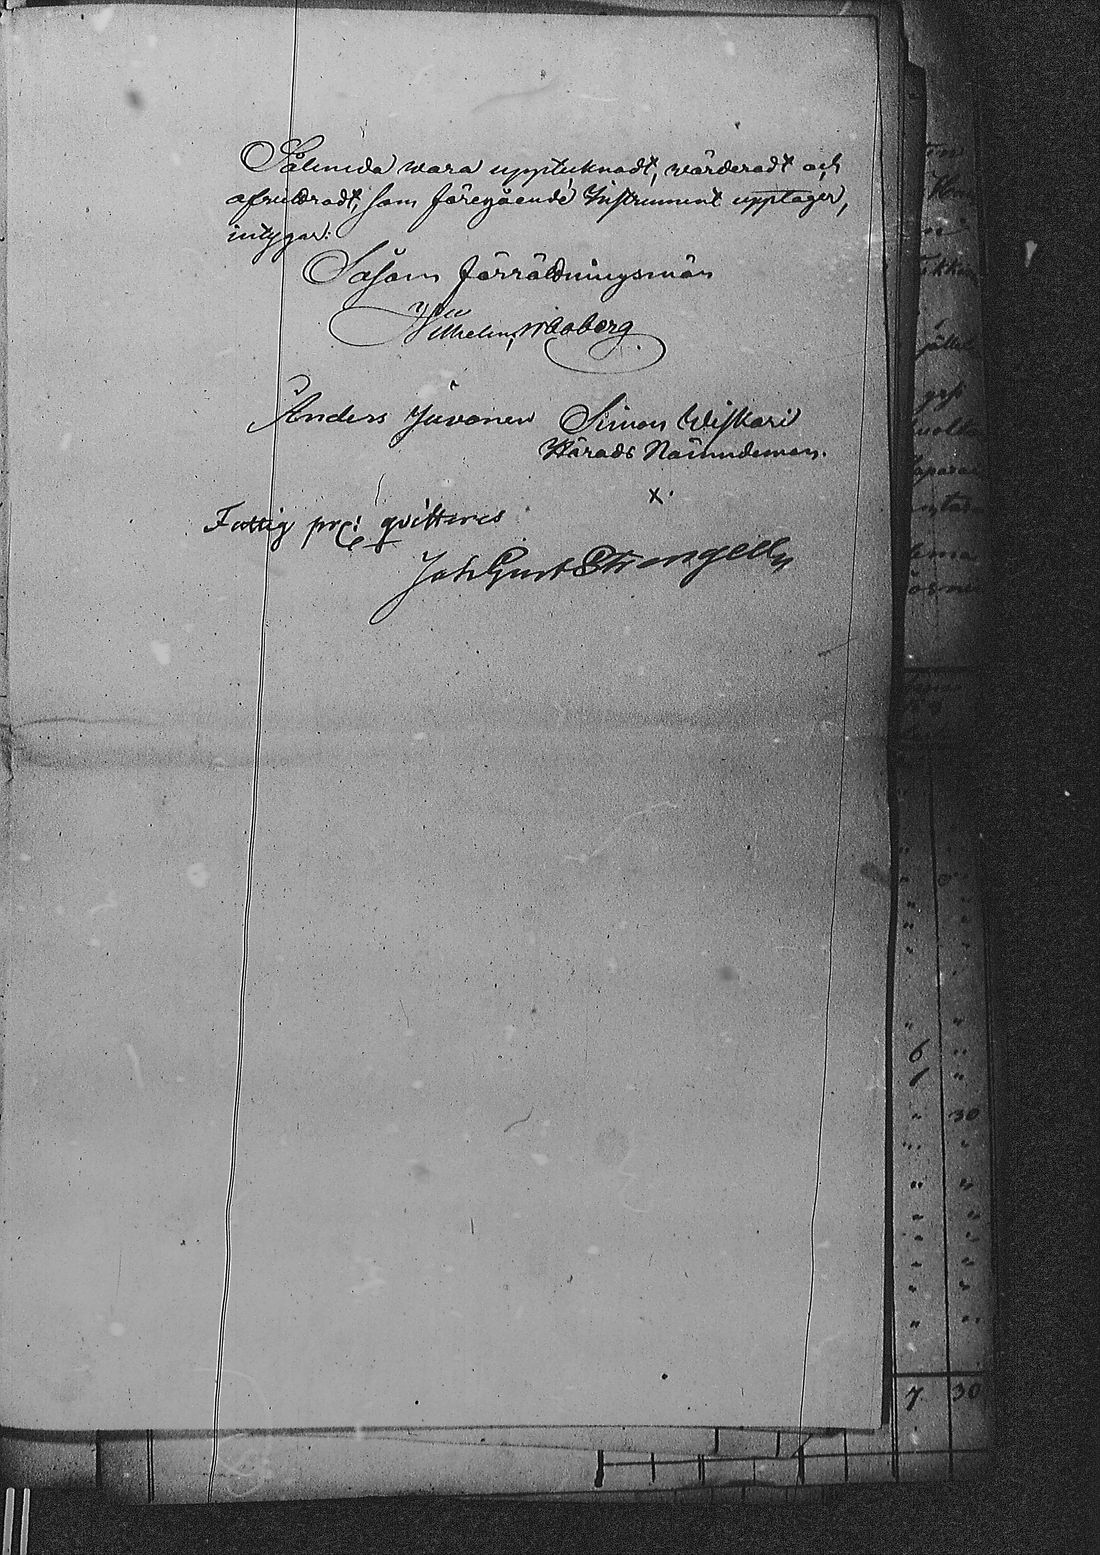 Sålunda wara upptecknadt, wärderadt och
afvittradt, som föregående Instrument upptager,
intygar:
Såsom förrättningsmän
Wilhelm
Anders Juvonen Simon Wiskari
Härads Nämndeman.
x.
Fattig prc: qvitteras
Joh Gust Strengell
6 "
1 "
" 30
7 30